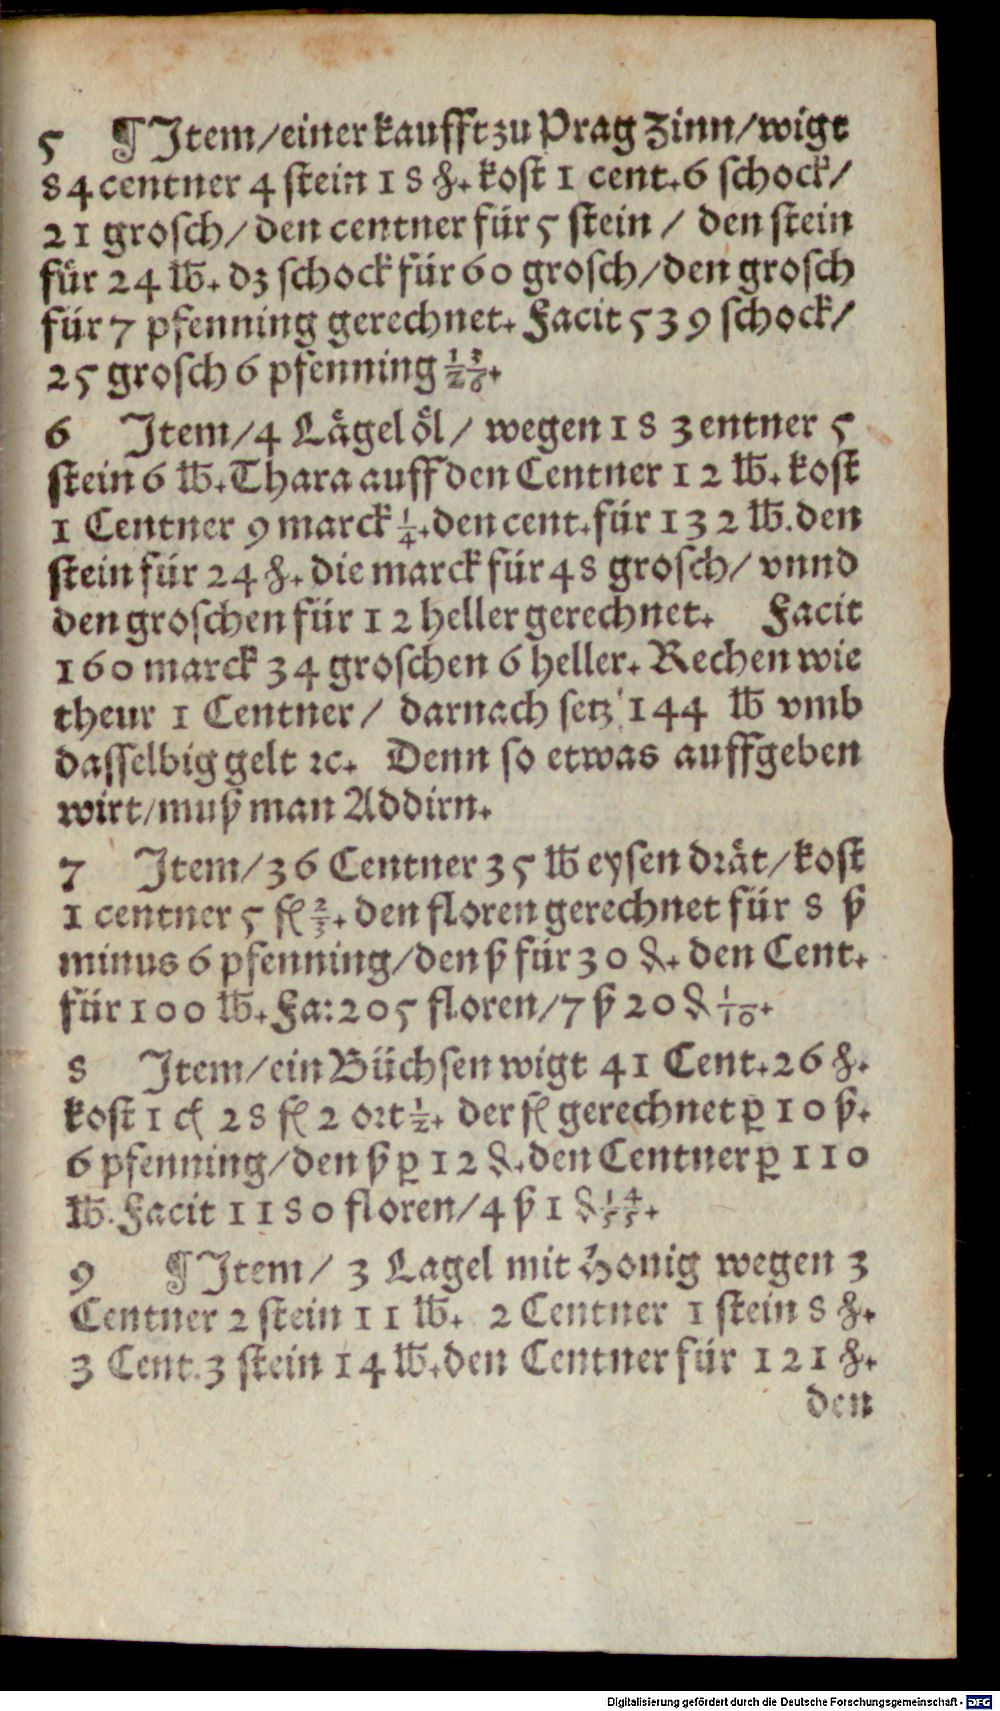 5 ¶ Item/einer kaufft zu Prag Zinn/wigt
84 centner 4 stein 18 ℔. kost 1 cent. 6 schock/
21 grosch/den centner für 5 stein/ den stein
für 24 ℔. dz schock für 60 grosch/den grosch
für 7 pfenning gerechnet. Facit 539 schock/
25 grosch 6 pfenning 13/20.
6 Item/4 Lågel ȯl/ wegen 18 zentner 5
stein 6 ℔. Thara auff den Centner 12 ℔. kost
1 Centner 9 marck 1/4. den cent. für 132 ℔. den
stein für 24 ℔. die marck für 48 grosch/ vnnd
den groschen für 12 heller gerechnet. Facit
160 marck 34 groschen 6 heller. Rechen wie
theur 1 Centner/ darnach setz 144 ℔ vmb
dasselbig gelt ꝛc. Denn so etwas auffgeben
wirt/muß man Addirn.
7 Item/36 Centner 35 ℔ eysen dråt/kost
1 centner 5 fl 2/3. den floren gerechnet für 8 ß
minus 6 pfenning/den ß für 30 ₰. den Cent.
für 100 ℔. Fa: 205 floren/7 ß 20 ₰ 1/10.
8 Item/ein Büchsen wigt 41 Cent. 26 ℔.
kost 1 cẽ 28 fl 2 ort 1/2. der fl gerechnet ꝑ 10 ß.
6 pfenning/den ß ꝑ 12 ₰. den Centner ꝑ 110
℔. Facit 1180 floren/4 ß 1 ₰ 14/55.
9 ¶ Item/ 3 Lagel mit Honig wegen 3
Centner 2 stein 11 ℔. 2 Centner 1 stein 8 ℔.
3 Cent. 3 stein 14 ℔. den Centner für 121 ℔.
den
Digitalisierung gefördert durch die Deutsche Forschungsgemeinschaft - DFG